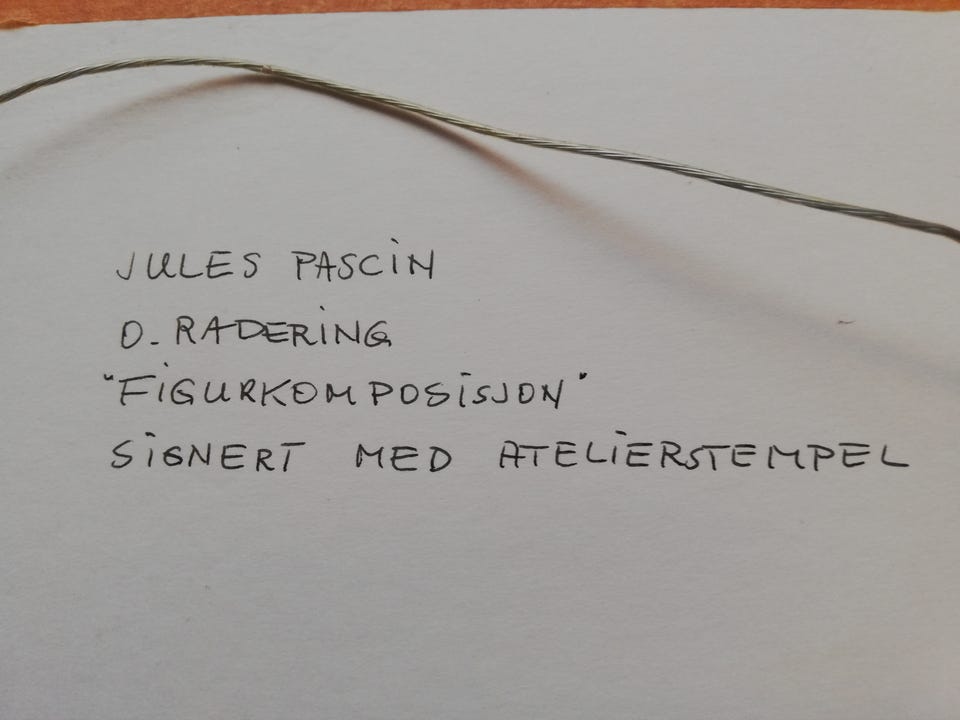 JULES PASCIN
O. RADERING
"FIGURKOMPOSISJON"
SIGNERT MED ATELIERSTEMPEL